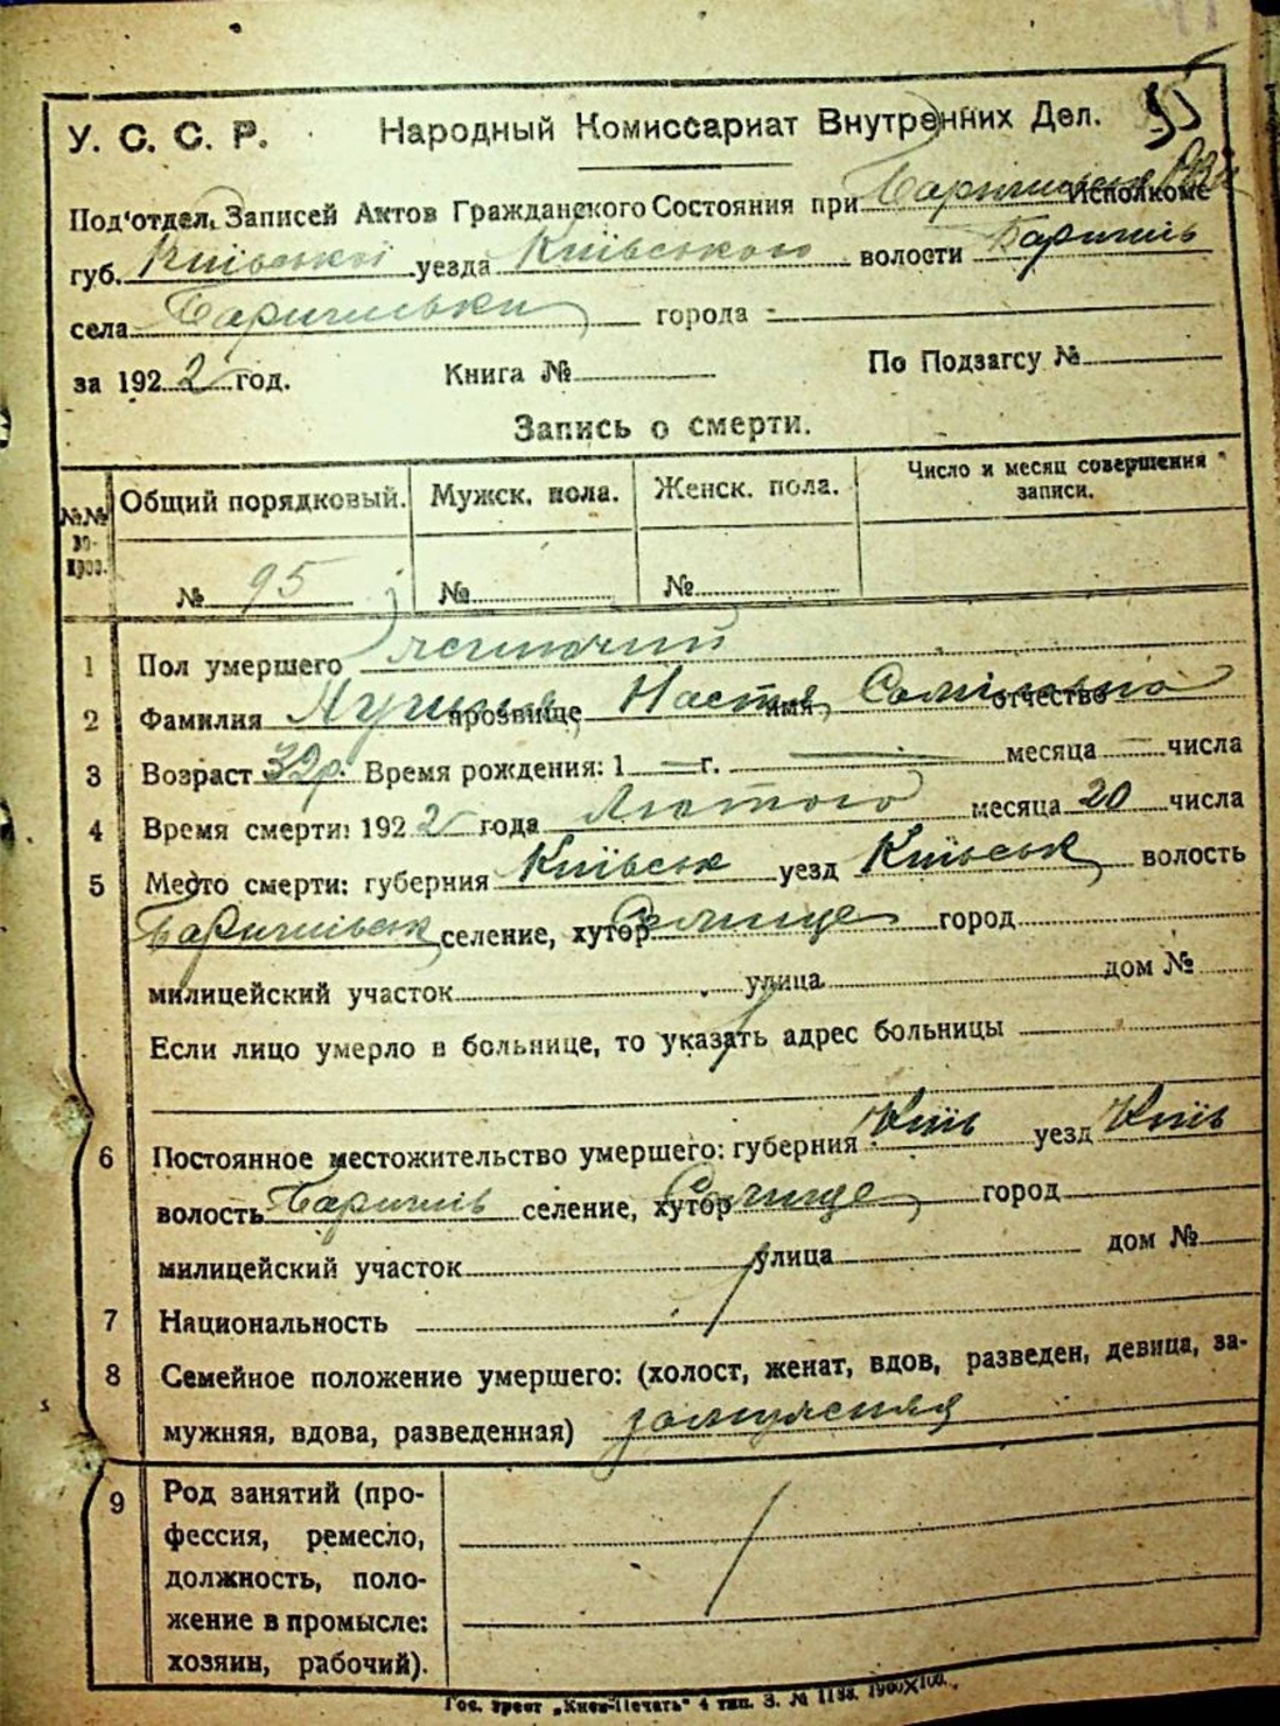 95
У. С. С. Р. Народный Комиссариат Внутренних Дел.
Под'отдел. Записей Актов Гражданского Состояния при Исполкоме
губ. Київської уезда Київського волости
села города
за 1922 год. Книга № По Подзагсу №
Запись о смерти.
№№ Общий порядковый. Мужск. пола. Женск. пола. Число и месяц совершения записи.
№ 95 № №
1 Пол умершего жіночий
2 Фамилия прозвище Настя имя отчество
3 Возраст 32 р. Время рождения: 1 — г. — месяца — числа
4 Время смерти: 1922 года Лютого месяца 20 числа
5 Место смерти: губерния Київськ уезд Київськ волость
селение, хутор город
милицейский участок улица дом №
Если лицо умерло в больнице, то указать адрес больницы
6 Постоянное местожительство умершего: губерния Київ уезд Київ
волость селение, хутор город
милицейский участок улица дом №
7 Национальность
8 Семейное положение умершего: (холост, женат, вдов, разведен, девица, за-
мужняя, вдова, разведенная) замужняя
9 Род занятий (про-
фессия, ремесло,
должность, поло-
жение в промысле:
хозяин, рабочий).
Гос. трест „Киев-Печать“ 4 тип. З. № 1188.